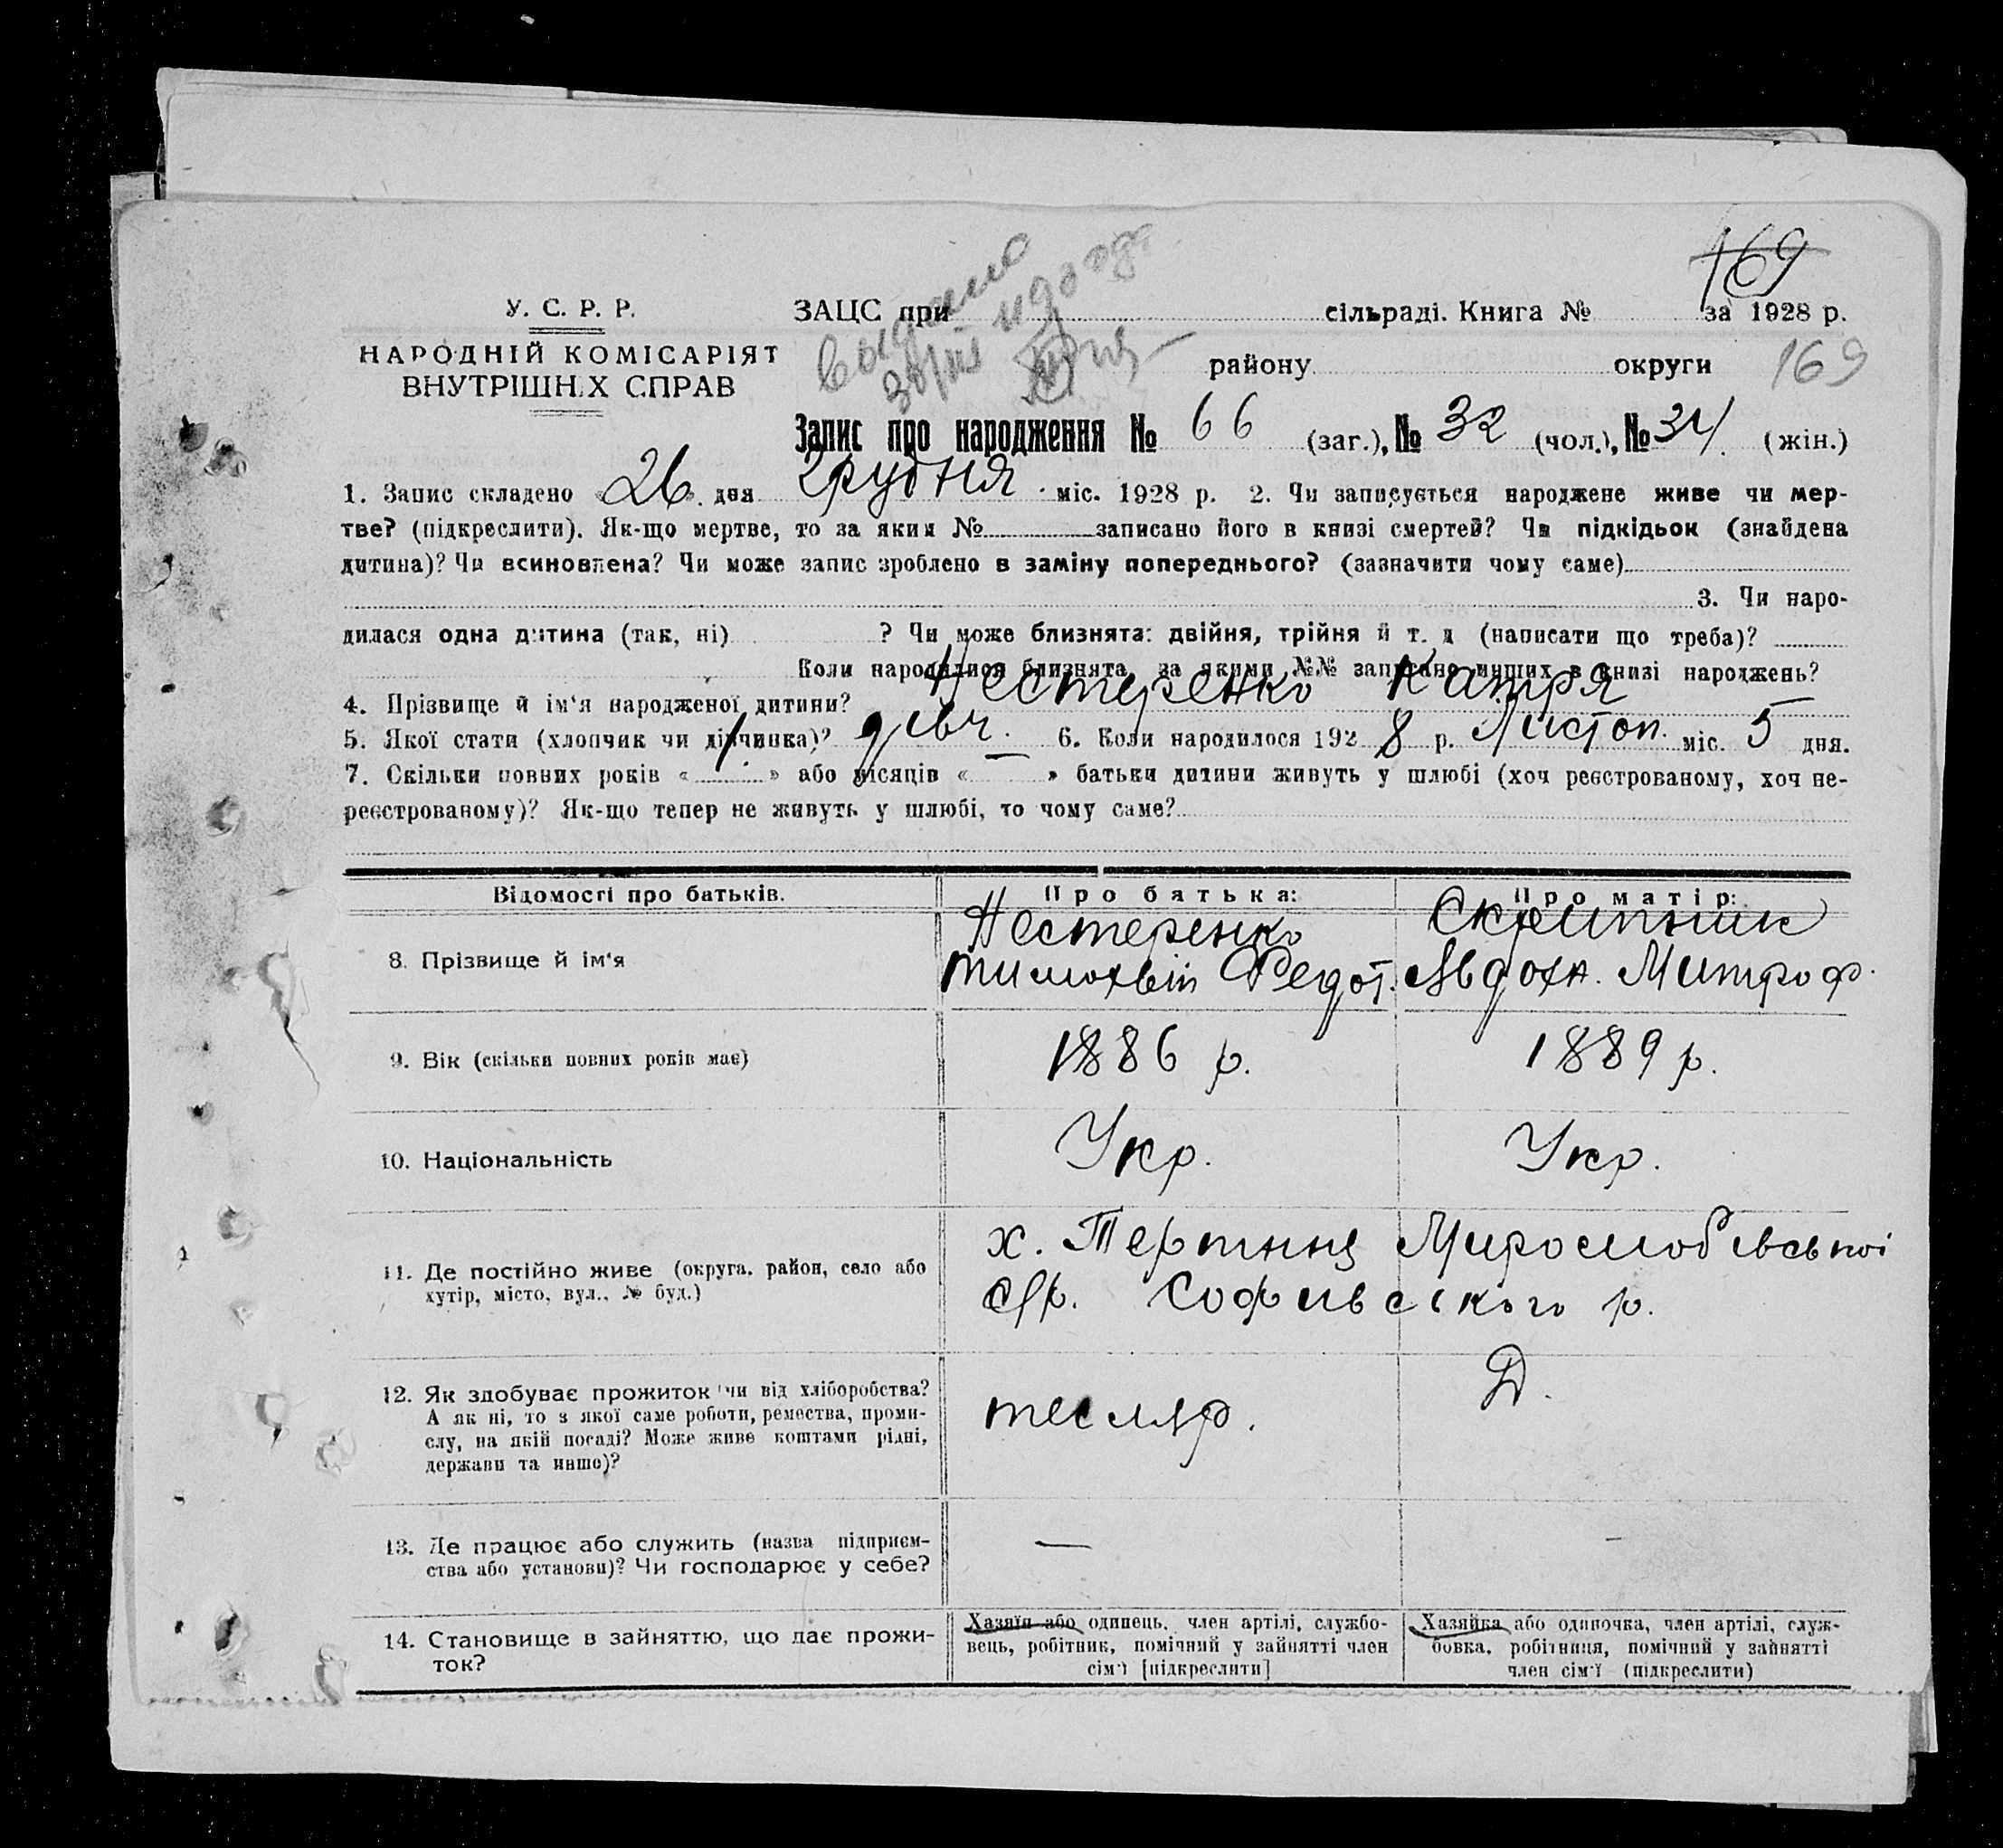 169
У. С. Р. Р.
ЗАЦС при сільраді. Книга № за 1928 р.
НАРОДНІЙ КОМІСАРІЯТ
ВНУТРІШНІХ СПРАВ
району округи 169
Запис про народження № 66 (заг.), № 32 (чол.), № 34 (жін.)
1. Запис складено «26» дня грудня міс. 1928 р. 2. Чи записується народжене живе чи мер-
тве? (підкреслити). Як-що мертве, то за яким № записано його в книзі смертей? Чи підкідьок (знайдена
дитина)? Чи всиновлена? Чи може запис зроблено в заміну попереднього? (зазначити чому саме)
3. Чи наро-
дилася одна дитина (так, ні) ? Чи може близнята: двійня, трійня й т. д (написати що треба)?
Коли народилися близнята, за якими №№ записано инших в книзі народжень?
4. Прізвище й ім'я народженої дитини? Нестеренко Катря
5. Якої стати (хлопчик чи дівчинка)? дівч. 6. Коли народилося 1928 р. Листоп. міс. 5 дня.
7. Скільки повних років « » або місяців « » батьки дитини живуть у шлюбі (хоч реєстрованому, хоч не-
реєстрованому)? Як-що тепер не живуть у шлюбі, то чому саме?
Відомості про батьків. Про батька: Про матір:
8. Прізвище й ім'я Нестеренко Тимохвій Федот. Скрипник Авдотя. Митроф.
9. Вік (скільки повних років має) 1886 р. 1889 р.
10. Національність Укр. Укр.
11. Де постійно живе (округа, район, село або
хутір, місто, вул., № буд.)
х.
с/р. Софиівського р.
12. Як здобуває прожиток чи від хліборобства?
А як ні, то з якої саме роботи, ремества, проми-
слу, на якій посаді? Може живе коштами рідні,
держави та инше)?
тесляр. Д.
13. Де працює або служить (назва підприєм-
ства або установи)? Чи господарює у себе?
— –
14. Становище в зайняттю, що дає прожи-
ток?
Хазяїн або одинець, член артілі, службо-
вець, робітник, помічний у зайнятті член
сім'ї [підкреслити]
Хазяйка або одиночка, член артілі, служ-
бовка, робітниця, помічний у зайнятті
член сім'ї (підкреслити)